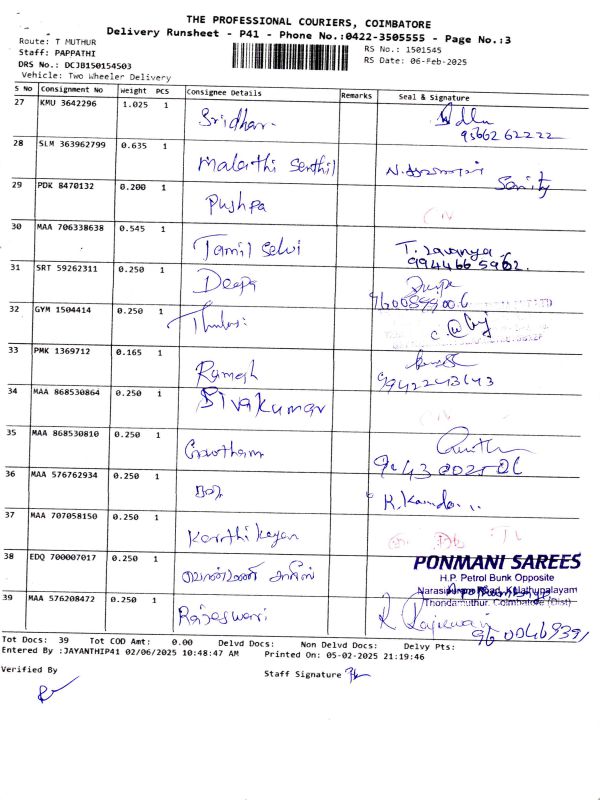 THE PROFESSIONAL COURIERS, COIMBATORE
Delivery Runsheet - P41 - Phone No.:0422-3505555 - Page No.:3
Route: T MUTHUR
Staff: PAPPATHI
DRS No.: DCJB150154503
Vehicle: Two Wheeler Delivery
RS No.: 1501545
RS Date: 06-Feb-2025
S No Consignment No Weight PCS Consignee Details Remarks Seal & Signature
27 KMU 3642296 1.025 1 Sridhar
9566262222
28 SLM 363962799 0.635 1 Malarthi Senthil
29 PDK 8470132 0.200 1 Pushpa
30 MAA 706338638 0.545 1 Tamil Selvi T. Lavanya
9944665962
31 SRT 59262311 0.250 1 Deepa
32 GYM 1504414 0.250 1 Thulasi
33 PMK 1369712 0.165 1 Ramesh
9942243643
34 MAA 868530864 0.250 1 Sivakumar
35 MAA 868530810 0.250 1 Gowtham
36 MAA 576762934 0.250 1
37 MAA 707058150 0.250 1 Karthikeyan
38 EDQ 700007017 0.250 1 வெண்மணி சாரீஸ்
PONMANI SAREES
H.P. Petrol Bunk Opposite
Narasipuram Road, Kulathupalayam
Thondamuthur. Coimbatore (Dist)
39 MAA 576208472 0.250 1 Rajeswari R Rajeswari
Tot Docs: 39 Tot COD Amt: 0.00 Delvd Docs: Non Delvd Docs: Delvy Pts:
Entered By :JAYANTHIP41 02/06/2025 10:48:47 AM Printed On: 05-02-2025 21:19:46
Verified By
Staff Signature